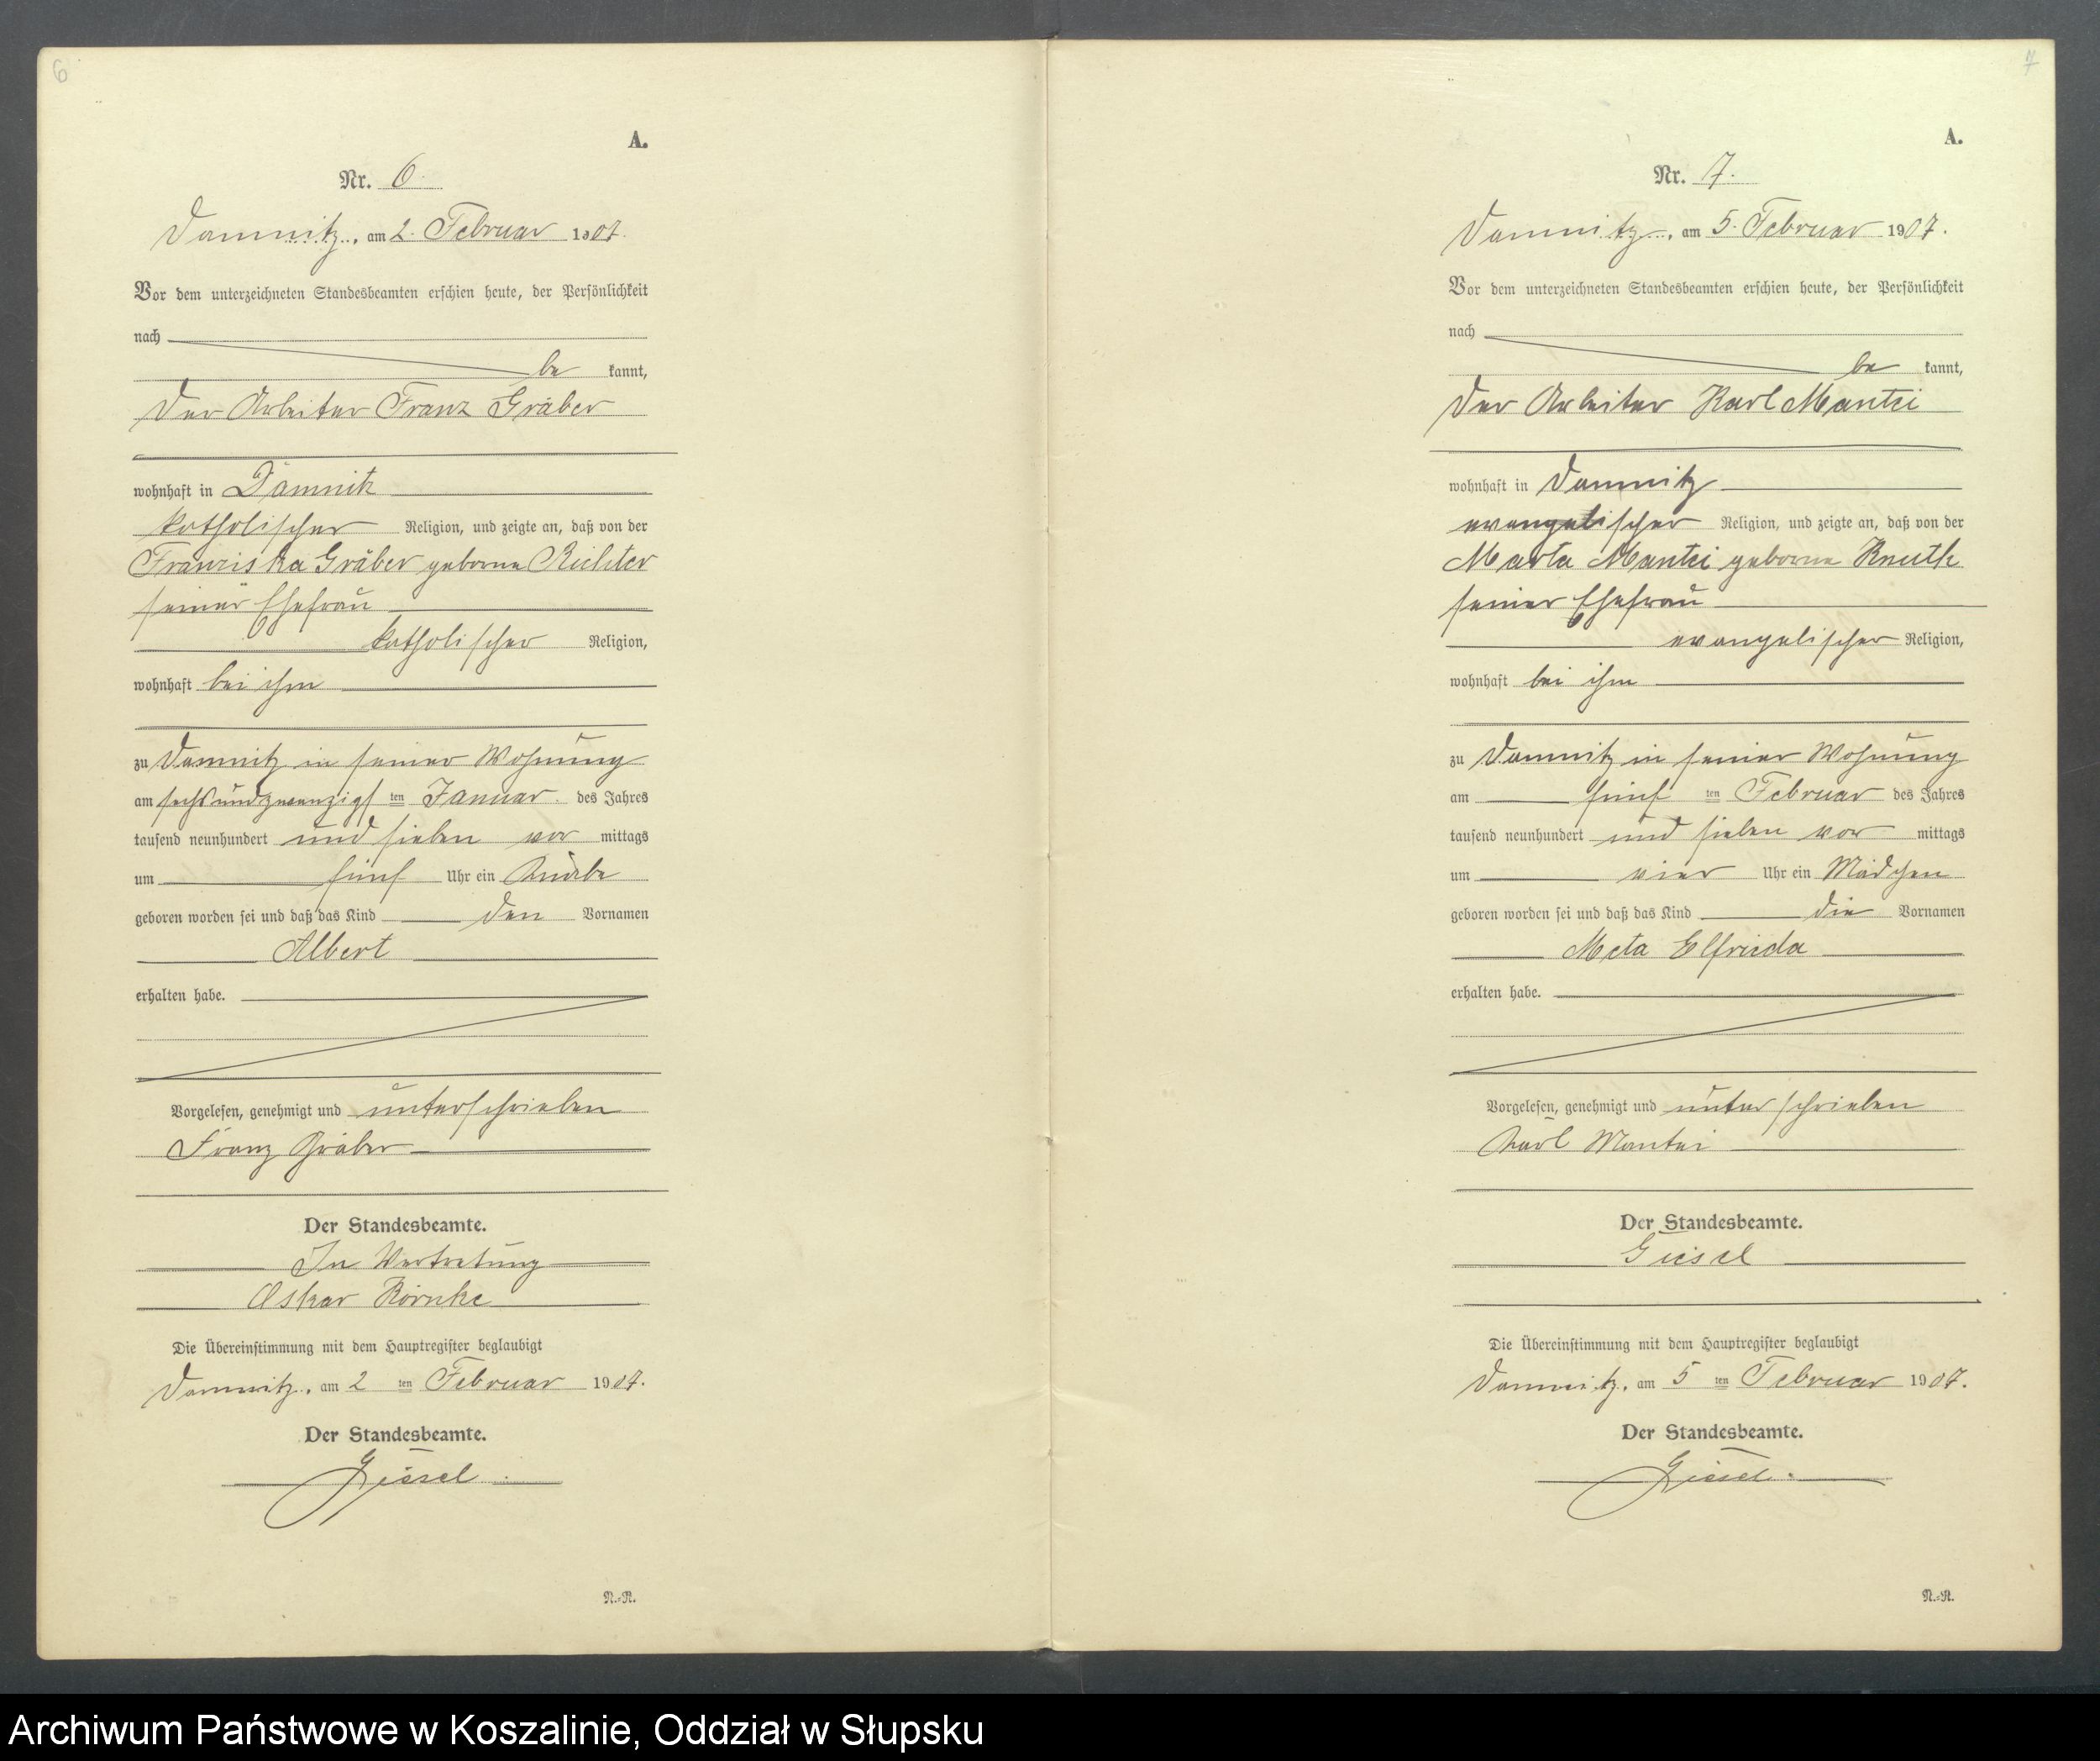 6
A.
Nr. 6.
Damnitz, am 2. Februar 1907.
Vor dem unterzeichneten Standesbeamten erschien heute, der Persönlichkeit
nach
be kannt,
der Arbeiter Franz Gräber
wohnhaft in Damnitz
katholischer Religion, und zeigte an, daß von der
Franziska Gräber geborne Richter
seiner Ehefrau
katholischer Religion,
wohnhaft bei ihm
zu Damnitz in seiner Wohnung
am sechsundzwanzigsten Januar des Jahres
tausend neunhundert und sieben vor mittags
um fünf Uhr ein Knabe
geboren worden sei und daß das Kind den Vornamen
Albert
erhalten habe.
Vorgelesen, genehmigt und unterschrieben
Franz Gräber
Der Standesbeamte.
In Vertretung
Oskar
Die Übereinstimmung mit dem Hauptregister beglaubigt
Damnitz, am 2 ten Februar 1907.
Der Standesbeamte.
Giesel.
N.-R.
7
A.
Nr. 7.
Damnitz, am 5. Februar 1907.
Vor dem unterzeichneten Standesbeamten erschien heute, der Persönlichkeit
nach
be kannt,
der Arbeiter Karl Mantei
wohnhaft in Damnitz
evangelischer Religion, und zeigte an, daß von der
Marta Mantei geborne Kneuth
seiner Ehefrau
evangelischer Religion,
wohnhaft bei ihm
zu Damnitz in seiner Wohnung
am fünf ten Februar des Jahres
tausend neunhundert und sieben vor mittags
um vier Uhr ein Mädchen
geboren worden sei und daß das Kind die Vornamen
Meta Elfrieda
erhalten habe.
Vorgelesen, genehmigt und unterschrieben
Karl Mantei
Der Standesbeamte.
Giesel
Die Übereinstimmung mit dem Hauptregister beglaubigt
Damnitz, am 5 ten Februar 1907.
Der Standesbeamte.
Giesel.
N.-R.
Archiwum Państwowe w Koszalinie, Oddział w Słupsku